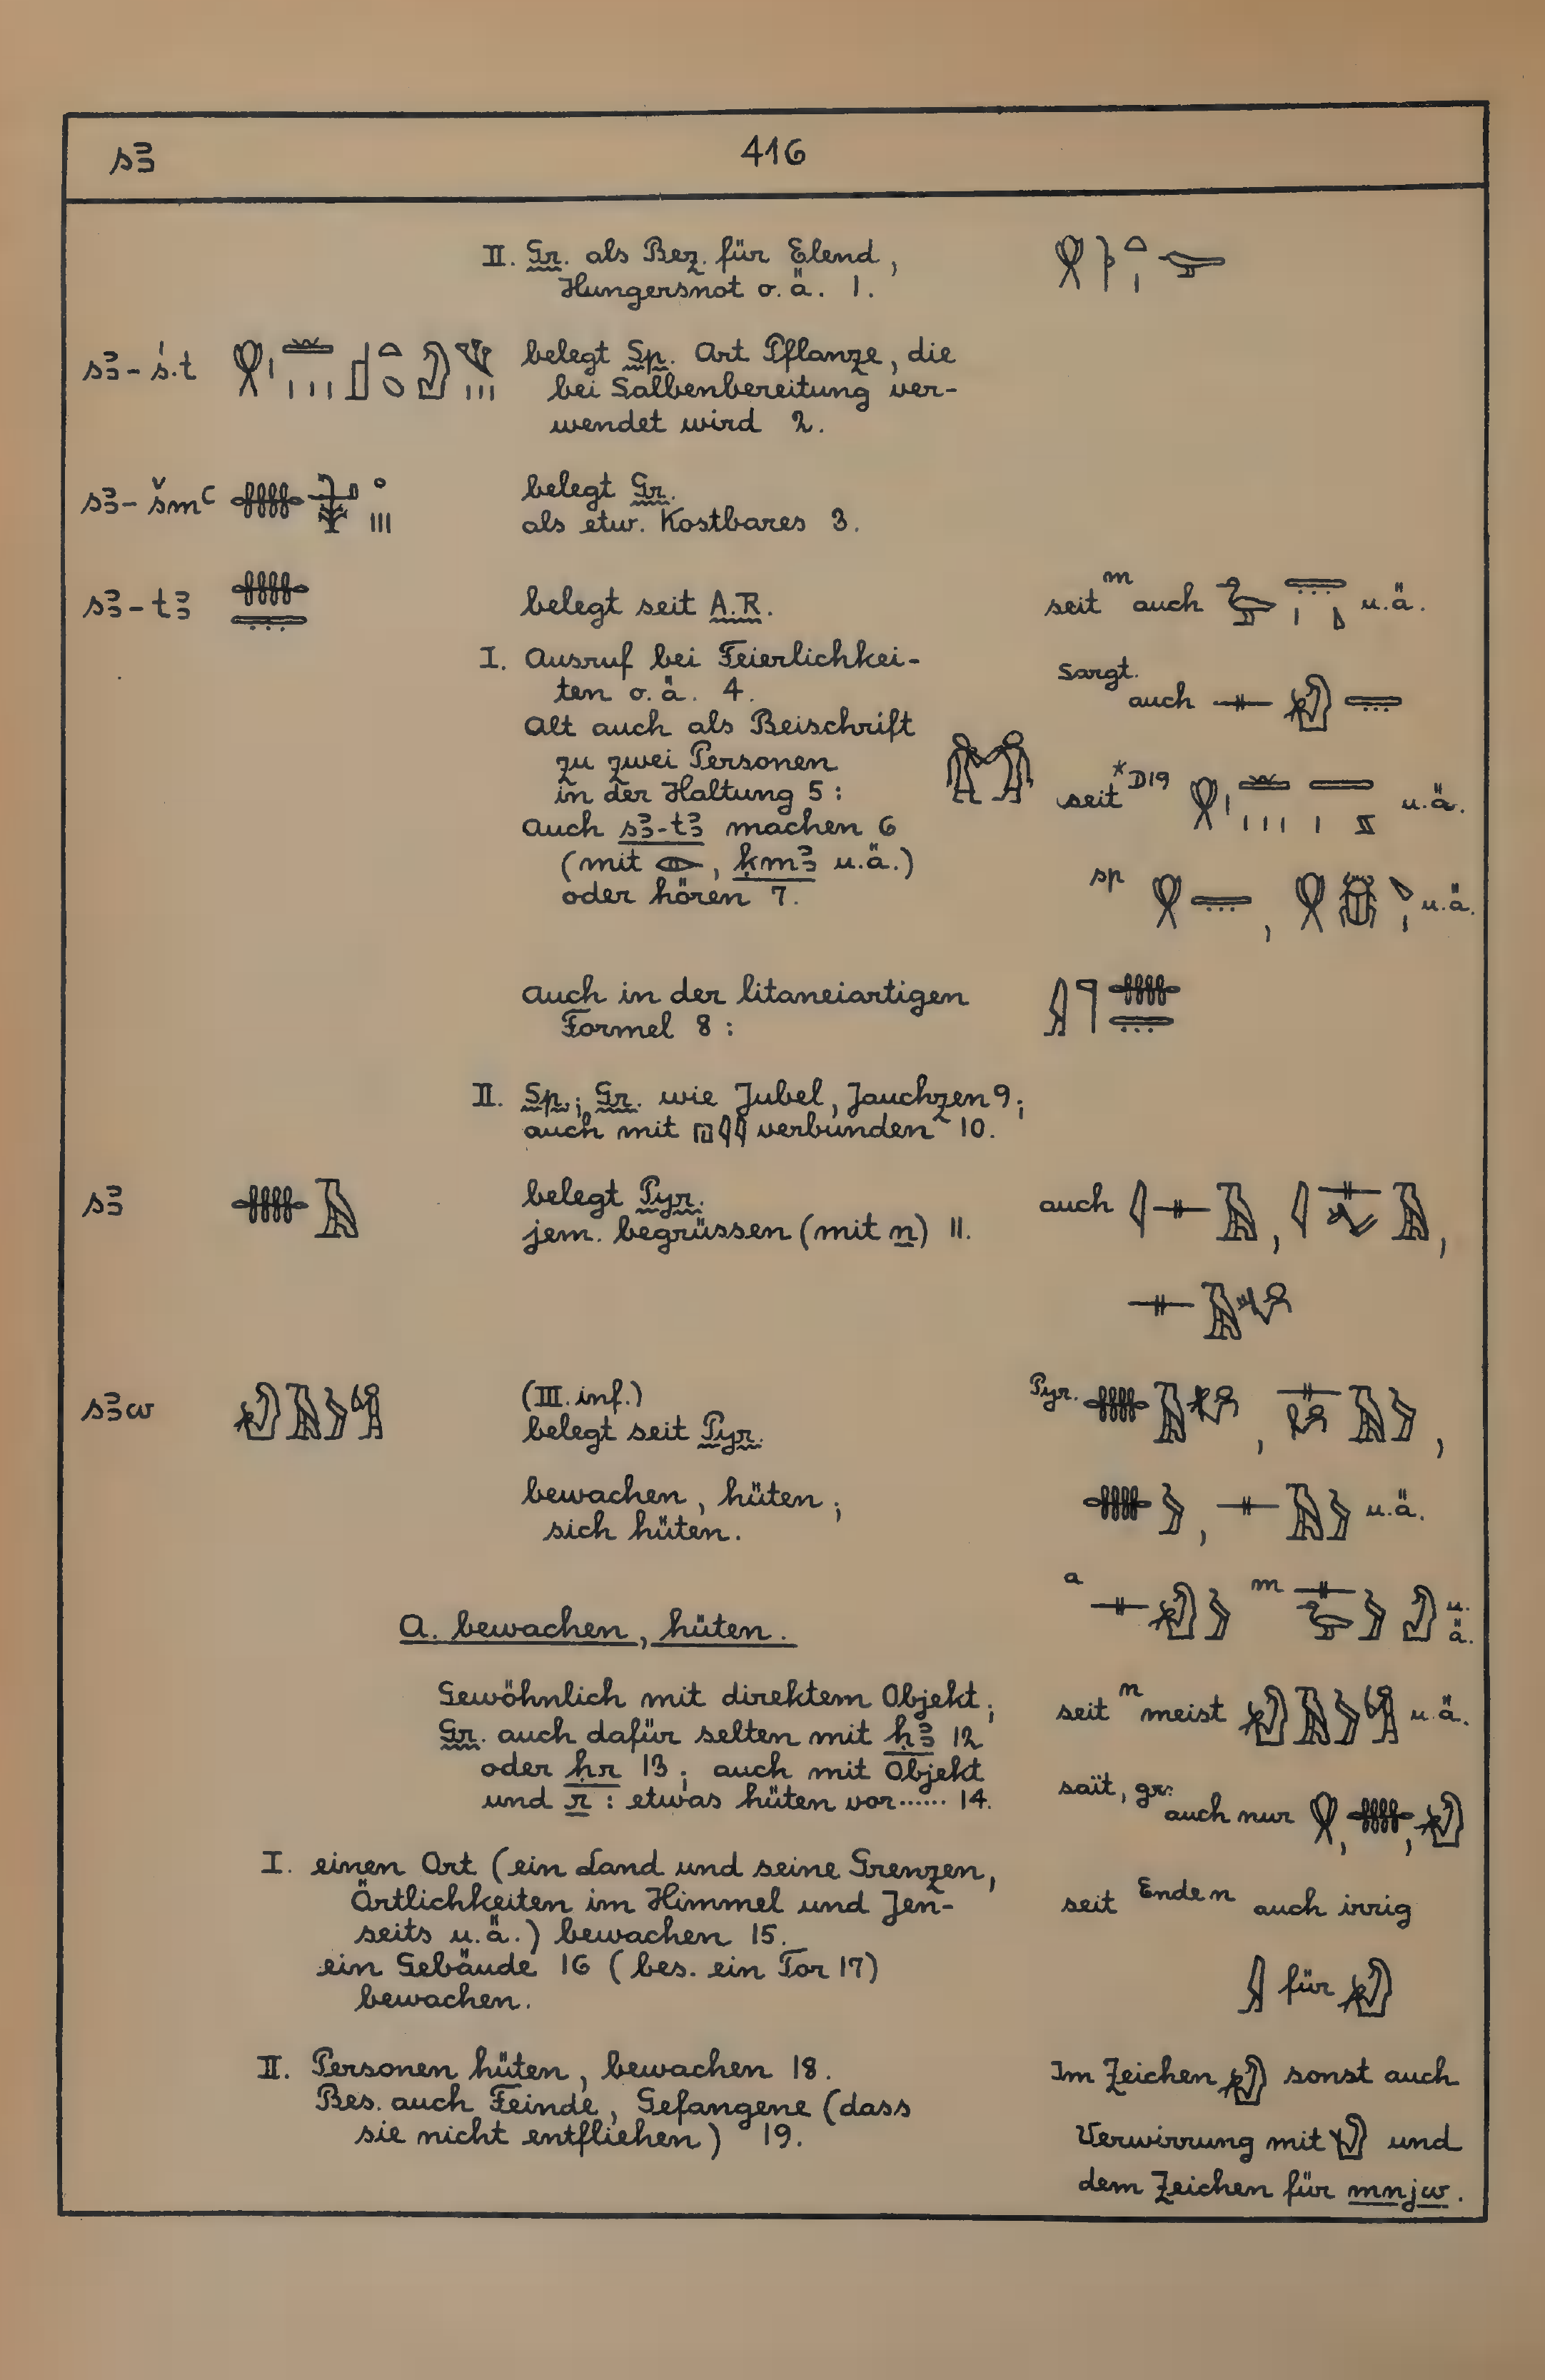 sꜣ 416
II. Gr. als Bez. für Elend,
Hungersnot o.ä. 1.
sꜣ-ś.t belegt Sp. Art Pflanze, die
bei Salbenbereitung ver-
wendet wird 2.
sꜣ-šmꜥ belegt Gr.
als etw. Kostbares 3.
sꜣ-tꜣ belegt seit A.R.
I. Ausruf bei Feierlichkei-
ten o.ä. 4.
Alt auch als Beischrift
zu zwei Personen
in der Haltung 5:
Auch sꜣ-tꜣ machen 6
(mit , ḳmꜣ u.ä.)
oder hören 7.
seit m auch u.ä.
Sargt. auch
seit *D19 u.ä.
sp , u.ä.
auch in der litaneiartigen
Formel 8:
II. Sp.; Gr. wie Jubel, Jauchzen 9;
auch mit verbunden 10.
sꜣ belegt Pyr.
jem. begrüssen (mit n) 11.
auch , ,
sꜣw (III. inf.)
belegt seit Pyr.
bewachen, hüten;
sich hüten.
Pyr. , ,
, u.ä.
a m u.
ä.
A. bewachen, hüten.
Gewöhnlich mit direktem Objekt;
Gr. auch dafür selten mit ḥꜣ 12
oder ḥr 13; auch mit Objekt
und r: etwas hüten vor...... 14.
seit n meist u.ä.
saït, gr. auch nur , ,
I. einen Ort (ein Land und seine Grenzen,
Örtlichkeiten im Himmel und Jen-
seits u.ä.) bewachen 15.
ein Gebäude 16 (bes. ein Tor 17)
bewachen.
seit Ende n auch irrig
für
II. Personen hüten, bewachen 18.
Bes. auch Feinde, Gefangene (dass
sie nicht entfliehen) 19.
Im Zeichen sonst auch
Verwirrung mit und
dem Zeichen für mnjw.